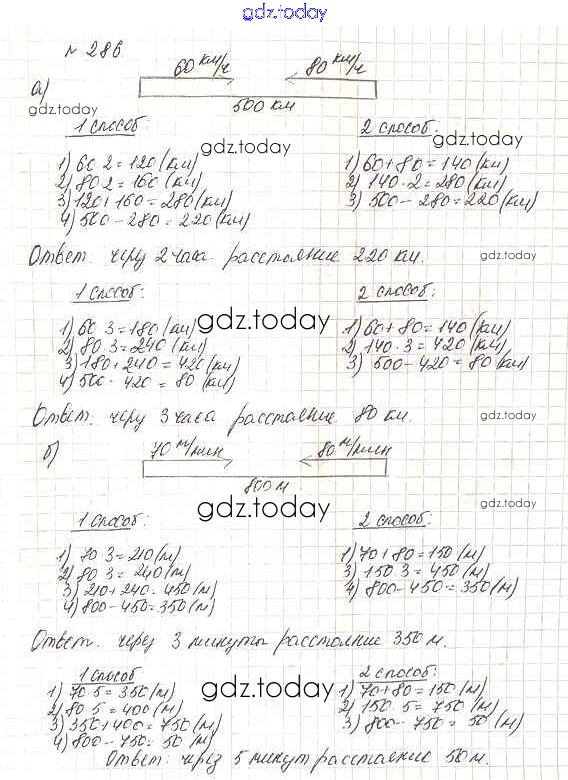 gdz.today
№ 286
а) 60 км/ч 80 км/ч
gdz.today 500 км
1 способ: 2 способ:
gdz.today gdz.today
1) 60 2 = 120 (км) 1) 60 + 80 = 140 (км)
2) 80 2 = 160 (км) 2) 140 · 2 = 280 (км)
3) 120 + 160 = 280 (км) 3) 500 - 280 = 220 (км)
4) 500 - 280 = 220 (км)
Ответ. через 2 часа расстояние 220 км. gdz.today
1 способ: 2 способ:
1) 60 3 = 180 (км) gdz.today 1) 60 + 80 = 140 (км)
2) 80 3 = 240 (км) 2) 140 · 3 = 420 (км)
3) 180 + 240 = 420 (км) 3) 500 - 420 = 80 (км)
4) 500 - 420 = 80 (км)
Ответ. через 3 часа расстояние 80 км. gdz.today
б) 70 м/мин 80 м/мин
800 м
gdz.today gdz.today
1 способ: 2 способ:
1) 70 3 = 210 (м) 1) 70 + 80 = 150 (м)
2) 80 3 = 240 (м) 3) 150 3 = 450 (м)
3) 210 + 240 = 450 (м) 4) 800 - 450 = 350 (м)
4) 800 - 450 = 350 (м)
Ответ. через 3 минуты расстояние 350 м.
1 способ 2 способ:
1) 70 5 = 350 (м) gdz.today 1) 70 + 80 = 150 (м)
2) 80 5 = 400 (м) 2) 150 5 = 750 (м)
3) 350 + 400 = 750 (м) 3) 800 - 750 = 50 (м)
4) 800 - 750 = 50 (м)
Ответ: через 5 минут расстояние 50 м.
gdz.today